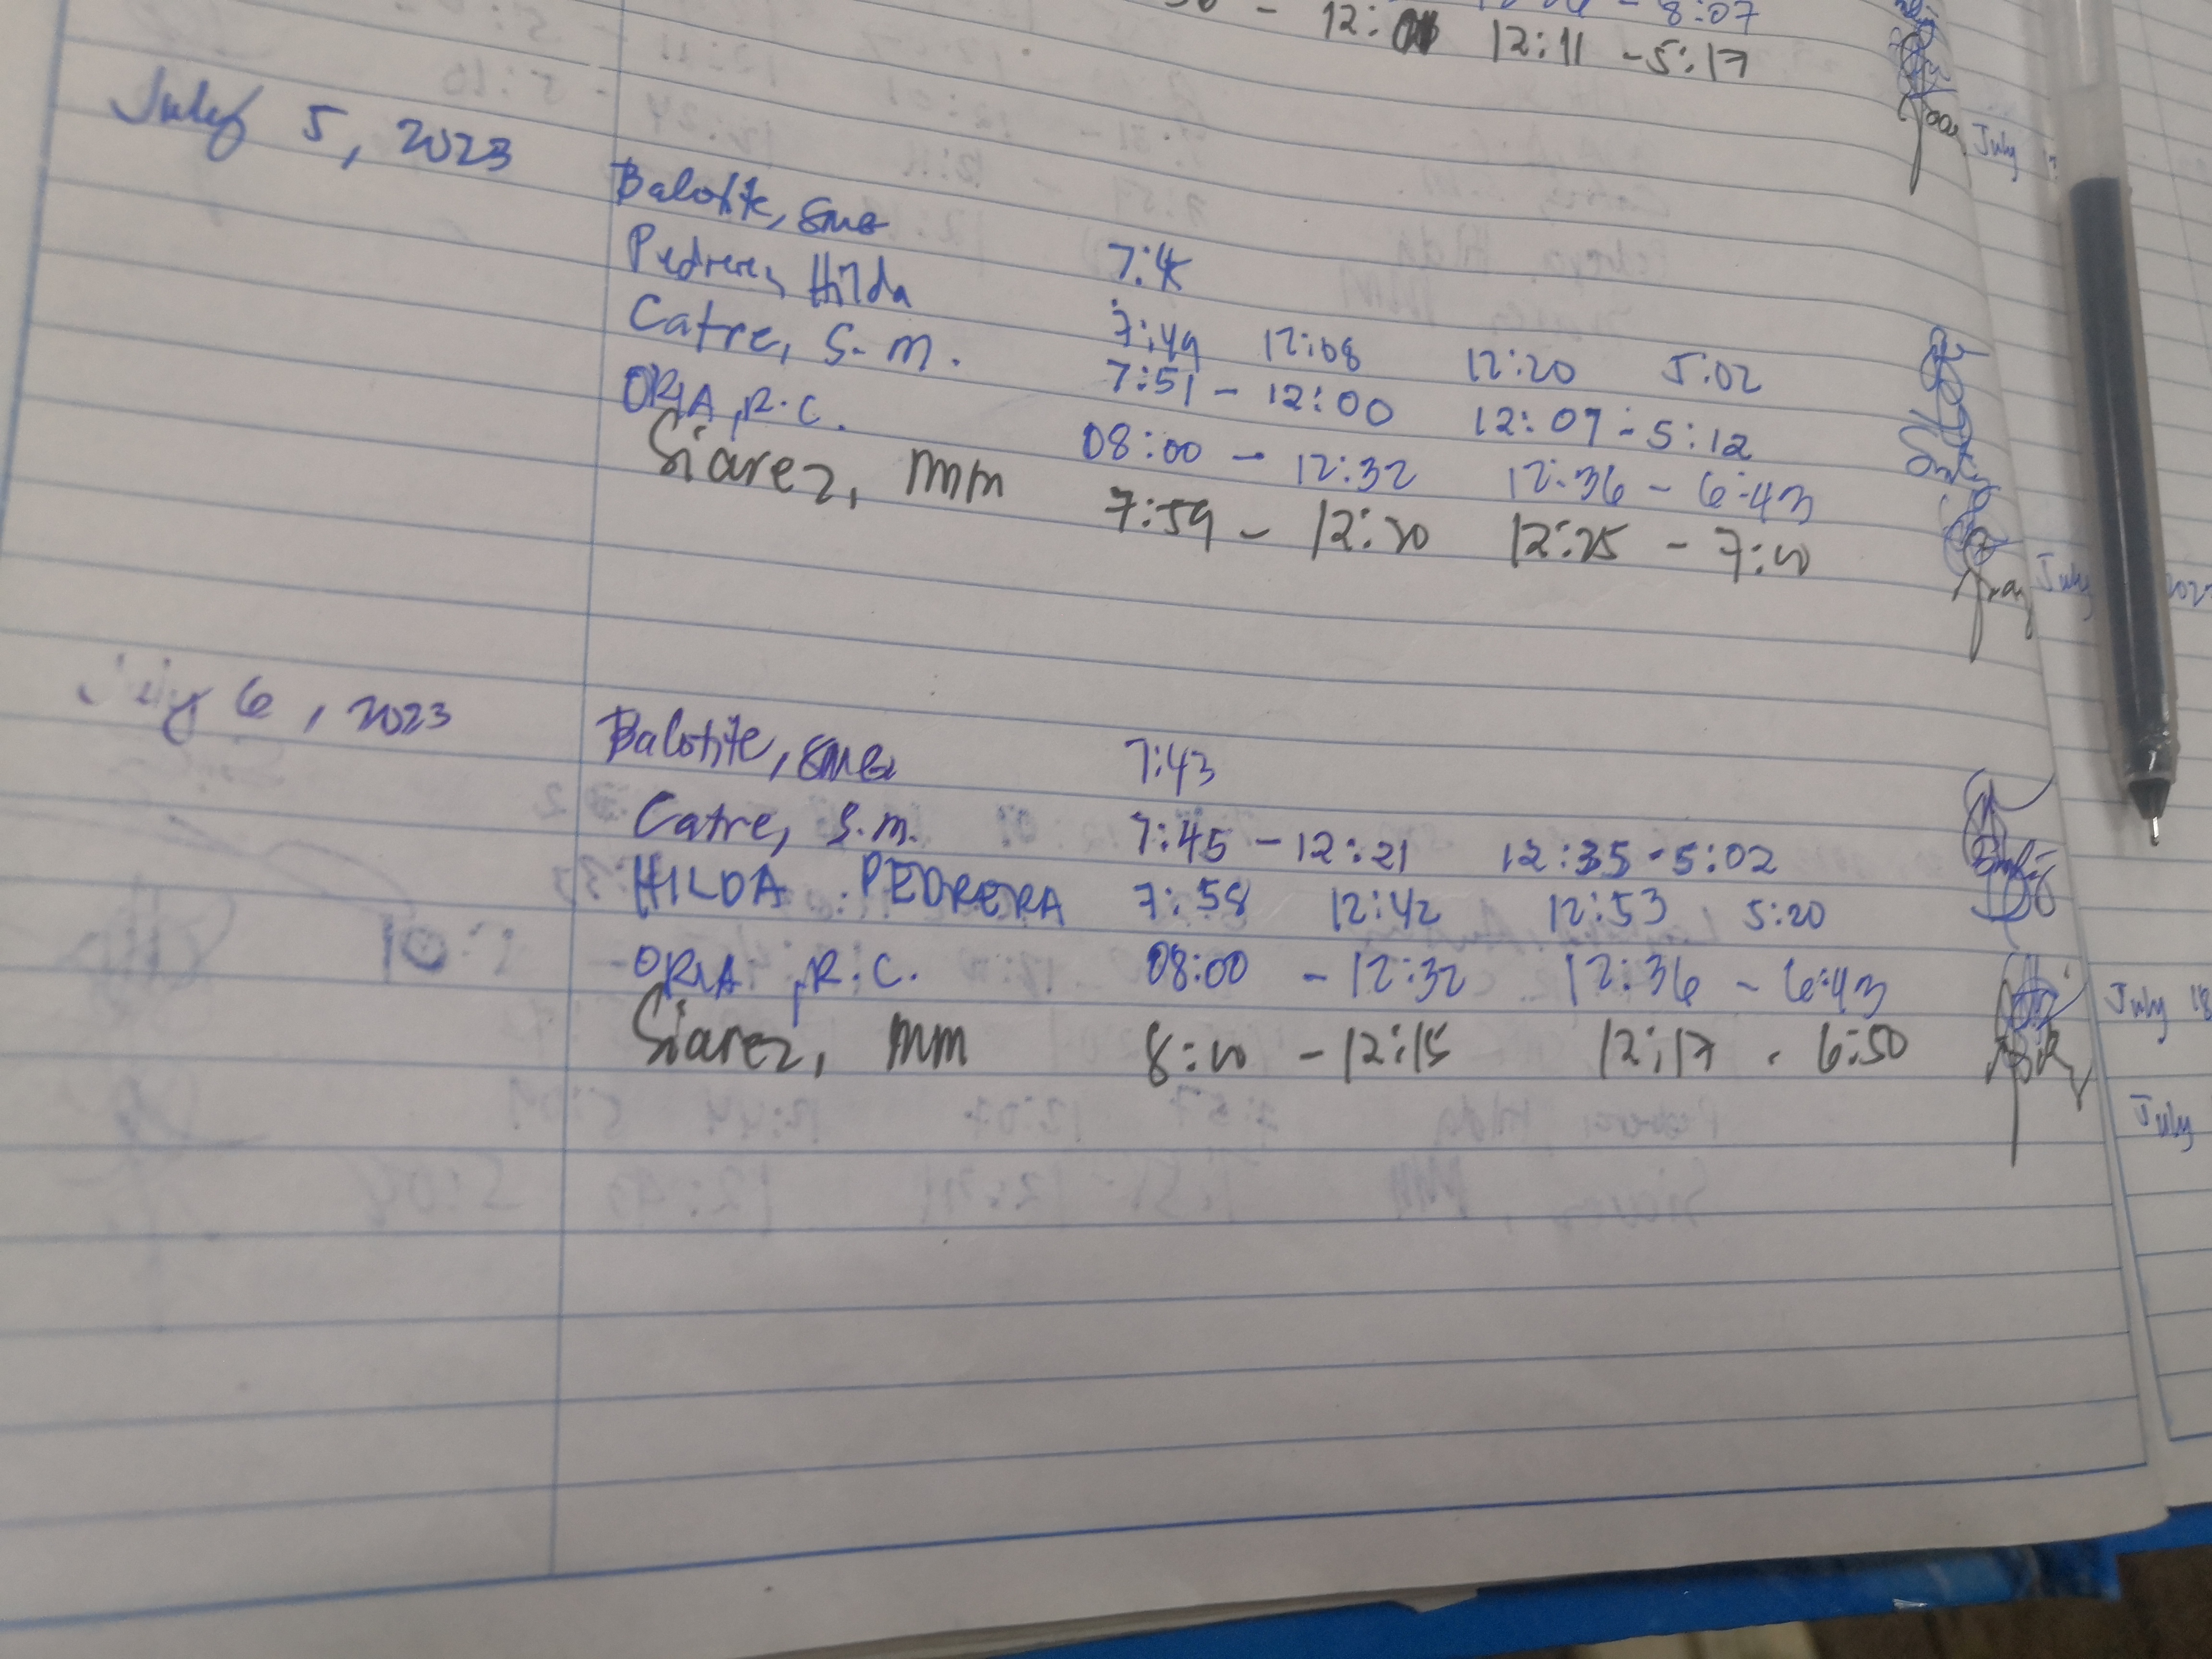 - 8:07
- 12: 12:11 - 5:17
July 5, 2023
Balotite, SMB
Pedrera, Hilda 7:45
Catre, S.M. 7:49 12:08 12:20 5:02
ORIA, R.C. 7:51 - 12:00 12:07 - 5:12
Siarez, MM 08:00 - 12:32 12:36 - 6:43
7:59 - 12:20 12:25 - 7:00
July 6, 2023 Balotite, SMB 7:43
Catre, S.M. 7:45 - 12:21 12:35 - 5:02
HILDA PEDRERA 7:58 12:42 12:53 5:20
ORIA, R.C. 08:00 - 12:32 12:36 - 6:43
Siarez, MM 8:00 - 12:15 12:17 - 6:50
July
July
July 18
July